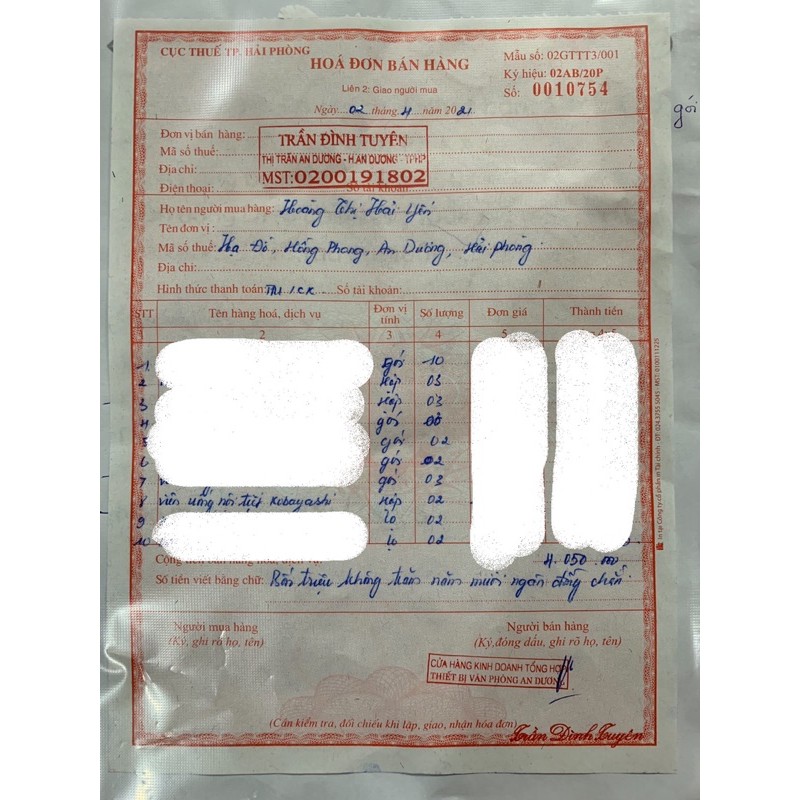 CỤC THUẾ TP. HẢI PHÒNG
HOÁ ĐƠN BÁN HÀNG
Liên 2: Giao người mua
Ngày 02 tháng 4 năm 2021
Mẫu số: 02GTTT3/001
Ký hiệu: 02AB/20P
Số: 0010754
gói
Đơn vị bán hàng:
Mã số thuế:
Địa chỉ:
Điện thoại: Số tài khoản:
TRẦN ĐÌNH TUYÊN
THỊ TRẤN AN DƯƠNG - H.AN DƯƠNG - TPHP
MST:0200191802
Họ tên người mua hàng: Hoàng Thị Hải Yến
Tên đơn vị:
Mã số thuế: Hạ Đỗ, Hồng Phong, An Dương, Hải Phòng
Địa chỉ:
Hình thức thanh toán: TM/CK Số tài khoản:
STT Tên hàng hoá, dịch vụ Đơn vị tính Số lượng Đơn giá Thành tiền
1 2 3 4 5
1 gói 10
2 hộp 03
3 hộp 03
4 gói
5 gói 02
6 gói 02
7 gói 03
8 viên uống nội tiết Kobayashi hộp 02
9 lọ 02
10 lọ 02
Cộng tiền bán hàng hoá, dịch vụ: 4.050.000
Số tiền viết bằng chữ: Bốn triệu không trăm năm mươi ngàn đồng chẵn
Người mua hàng
(Ký, ghi rõ họ, tên)
Người bán hàng
(Ký,đóng dấu, ghi rõ họ, tên)
CỬA HÀNG KINH DOANH TỔNG HỢP
THIẾT BỊ VĂN PHÒNG AN DƯƠNG
(Cần kiểm tra, đối chiếu khi lập, giao, nhận hóa đơn)
Trần Đình Tuyên
In tại Công ty cổ phần in Tài chính - ĐT: 024.3755 5045 - MST: 0100111225